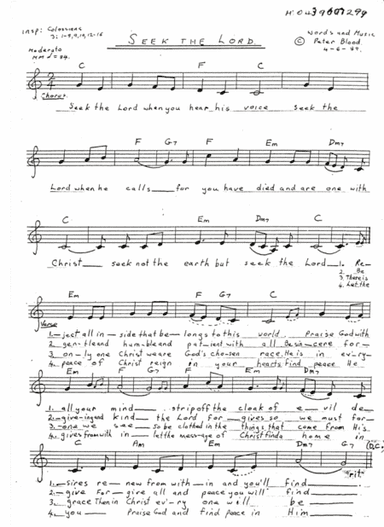 M.0439607299
insp: Colossians
3: 1-4, 9, 12-16
SEEK THE LORD
Words and Music
© Peter Blood
4-6-
Moderato
MM ♩= 84.
C F C
Chorus.
Seek the Lord when you hear his voice seek the
F G7 F Em Dm7
Lord when he calls for you have died and are one with
C Em Dm7 C
Christ seek not the earth but seek the Lord 1. Re-
2 Be
3 There is
4. Let the
Em F G7 C
Verse
1. ject all in-side that be-longs to this world. Praise God with
2. gen-tle and humble and pat-ient with all Be sin-cere for-
3. on-ly one Christ we are God's cho-sen race. He is in ev'-ry
4. peace of Christ reign in your hearts find peace He
Em F G7 F Em Dm7
1. all your mind. strip off the cloak of e-vil de-
2. giving and kind the Lord for-gives so we must for-
3. one we see so be clothed in the things that come from His
4. gives from with in let the message of Christ find a home in
C Am Em Dm7 G7 D.C.
rit
1. sires re-new from with-in and you'll find
2. give For-give all and peace you will find
3. grace Then in Christ ev'ry one will be
4. you Praise God and find Peace in Him